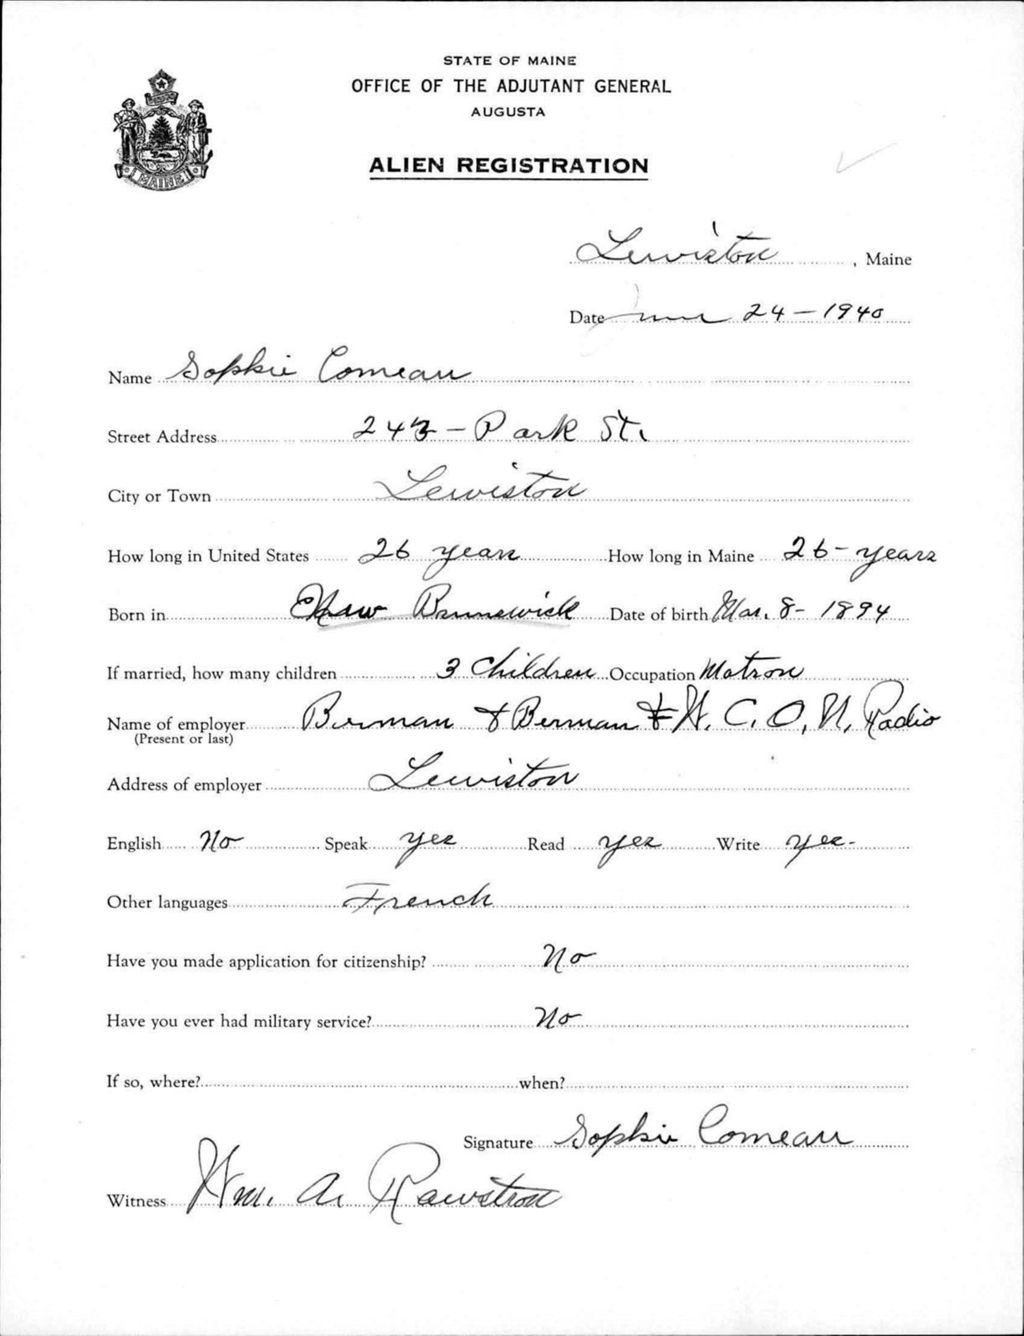 STATE OF MAINE
OFFICE OF THE ADJUTANT GENERAL
AUGUSTA
ALIEN REGISTRATION
MAINE
Lewiston, Maine
Date June 24-1940
Name Sophie Comeau
Street Address 243-Park St.
City or Town Lewiston
How long in United States 26 years How long in Maine 26-years
Born in New Brunswick Date of birth Mar. 8-1894
If married, how many children 3 Children Occupation Matron
Name of employer Berman & Berman & W. C. O. U. Radio
(Present or last)
Address of employer Lewiston
English No Speak yes Read yes Write yes-
Other languages French
Have you made application for citizenship? No
Have you ever had military service? No
If so, where? when?
Signature Sophie Comeau
Witness Wm. A. Rawstron